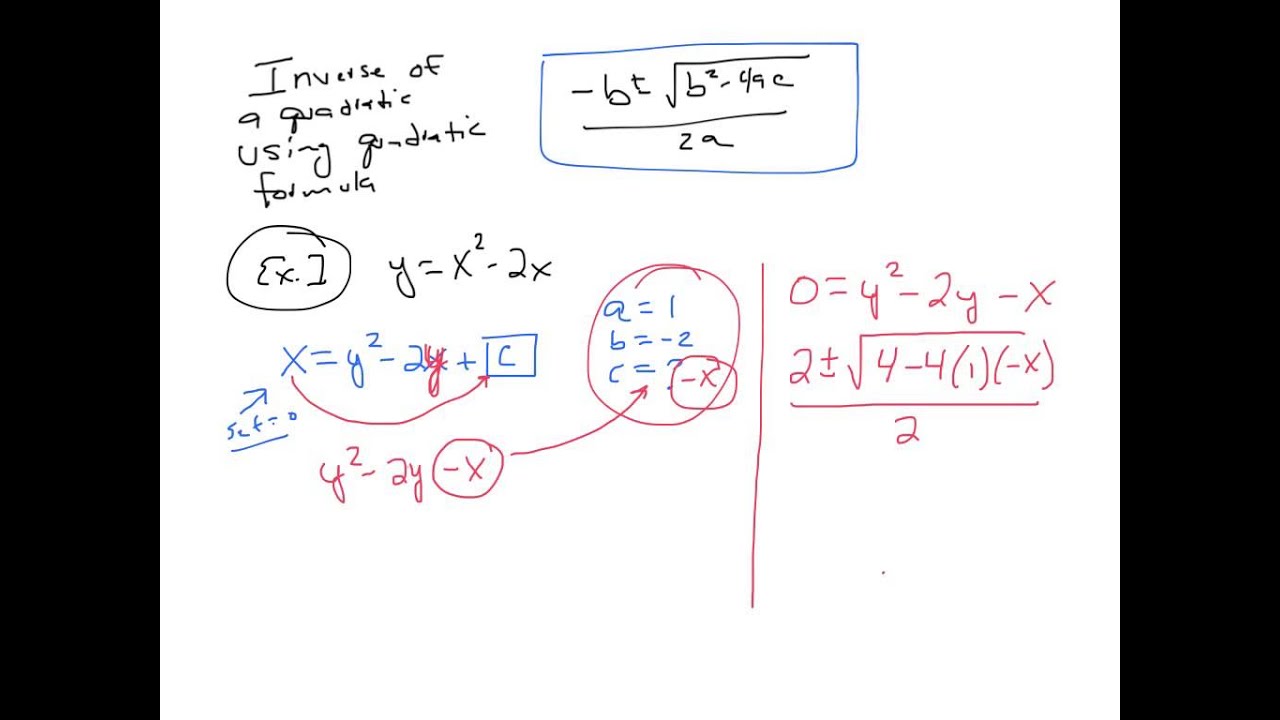 Inverse of
a quadratic
using quadratic
formula
-b ± √(b² - 4ac)
2a
Ex.]
y = x² - 2x
x = y² - 2y + c
set = 0
y² - 2y - x
a = 1
b = -2
c = ? -x
0 = y² - 2y - x
2 ± √(4 - 4(1)(-x))
2